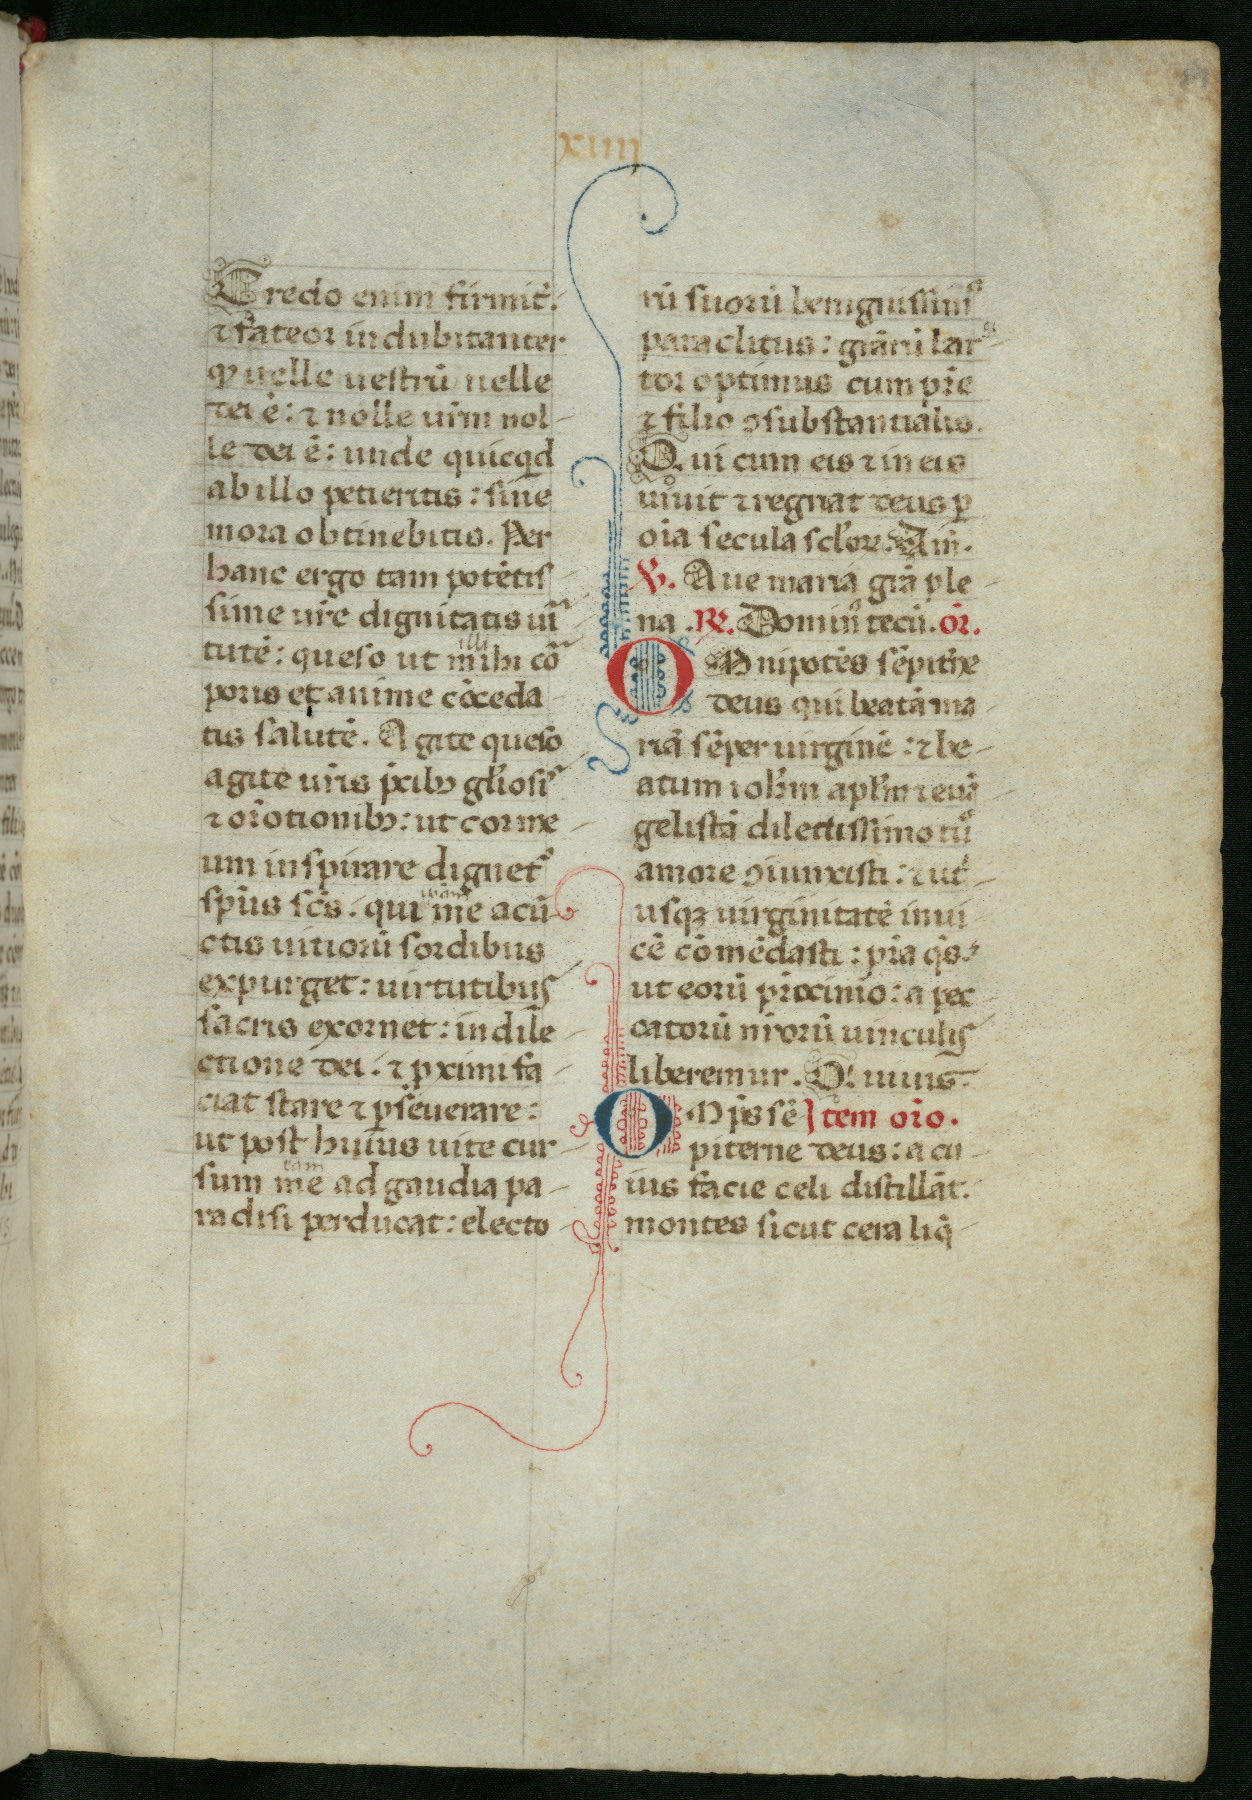 xiiij
Credo enim firmit̄.
⁊ fateor indubitanter
ꝙ uelle uestrū uelle
dei ē: ⁊ nolle ur̄m nol-
le dei ē: unde quicqd
ab illo petieritis: sine
mora obtinebitis. Per
hanc ergo tam potētis
sime ur̄e dignitatis uir
illi
tutē: queso ut mihi cōr
poris et anime cōceda
tis salutē. Agite queso
agite ur̄is p̄cibꝫ gl̄iosis
⁊ or̄otionibꝫ: ut cor me
um inspirare dignet᷑
sp̄us sc̄s: qui me a cū
ctis uitiorū sordibus
expurget: uirtutibus
sacris exornet: in dile
ctione dei: ⁊ ꝓximi fa
ciat stare ⁊ ꝑseuerare:
ut post huius uite cur
eam
sum me ad gaudia pa-
radisi perducat: electo
rū suorū benignissimꝰ
paraclitus: gr̄arū lar
tor optimus cum pr̄e
⁊ filio ꝯsubstantialis.
Qui cum eis ⁊ in eis
uiuit ⁊ regnat deus ꝑ
oīa secula sc̄lor. Am̄.
V. Aue maria gr̄a ple
na. R. Dominꝰ tecū. or̄.
OMnipotēs sēpit̄ne
deus qui beatā ma
riā sēper uirginē: ⁊ be-
atum ioh̄m apl̄m ⁊ euā
gelistā dilectissimo tuo
amore ꝯiunxisti: ⁊ ut̄
usqꝫ uirginitatē inui
cē cōmēdasti: p̄ra q̄s:
ut eorū pr̄ocinio: a pec
catorū nr̄orū uinculis
liberemur. Qi uiuis.
OMp̄s sē Item or̄o.
piterne deus: a cu
ius facie celi distillāt:
montes sicut cera liq̄